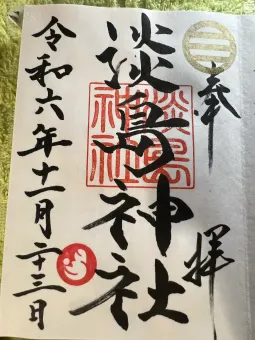 奉拝
淡嶌神社
淡島神社
令和六年十一月二十三日